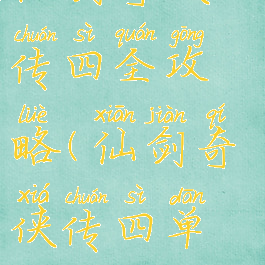 chuán sì quán gōng
传四全攻
lüè xiān jiàn qí
略(仙剑奇
xiá chuán sì dān
侠传四单